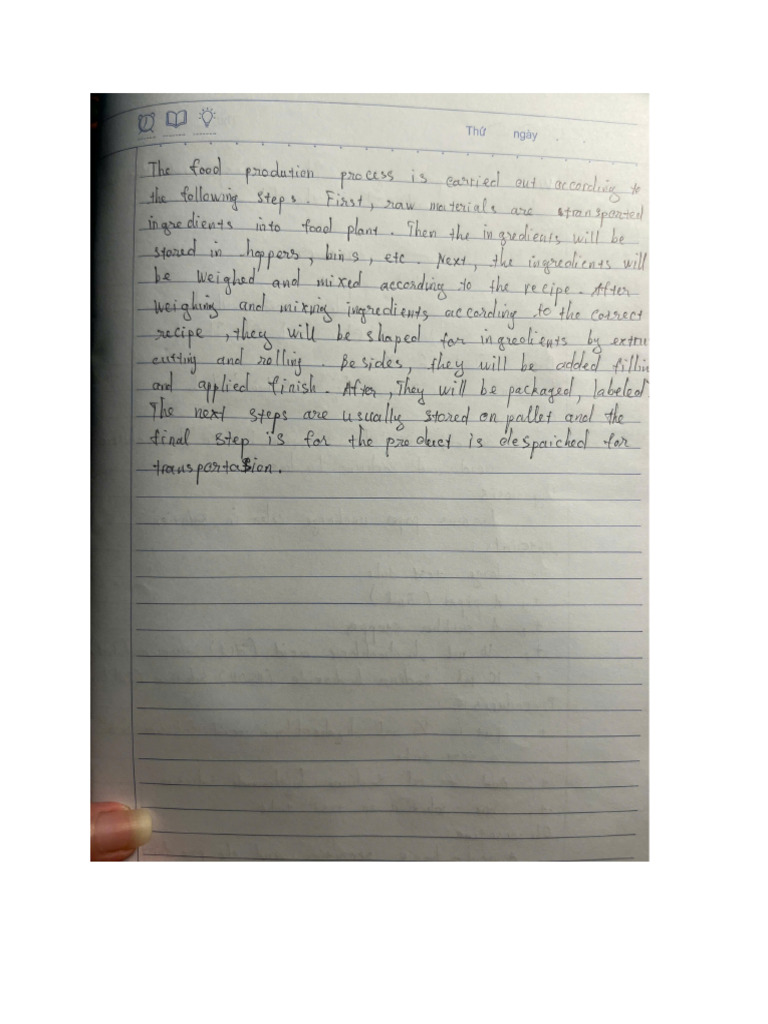 Thứ ngày
The food prodution process is carried out according to
the following steps. First, raw materials are stransported
ingredients into food plant. Then the ingredients will be
stored in hoppers, bins, etc. Next, the ingredients will
be weighed and mixed according to the recipe. After
weighing and mixing ingredients according to the correct
recipe, they will be shaped for ingredients by extru
cutting and rolling. Besides, they will be added fillin
and applied finish. After, They will be packaged, labeled
The next steps are usually stored on pallet and the
final step is for the product is despaiched for
transportasion.